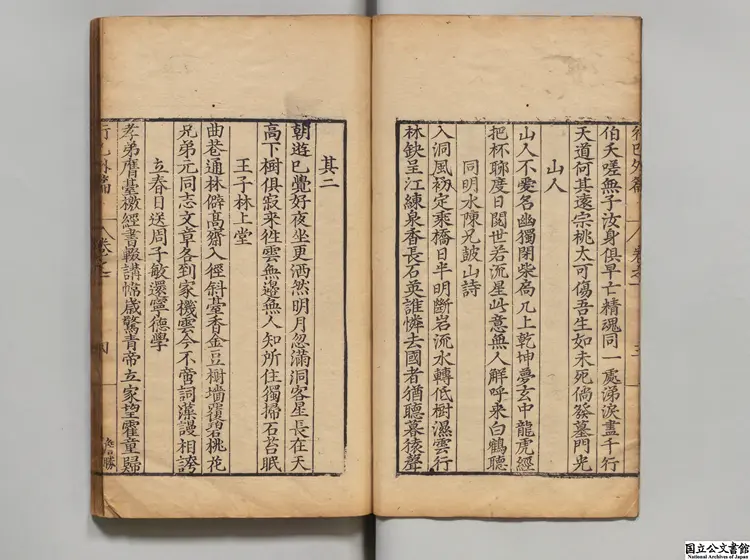 行已外篇 卷之一 三
伯夭嗟無子汝身俱早亡精魂同一處涕淚盡千行
天道何其遠宗桃太可傷吾生如未死倘發墓門光
山人
山人不愛名幽獨閉柴扃几上乾坤夢玄中龍虎經
把杯聊度日閱世若流星此意無人觧呼来白鶴聽
同明水陳兄皷山詩
入洞風初定乘橋日半明斷岩流水轉低樹濕雲行
林缺呈江練泉香長石英誰憐去國者猶聽暮猿聲
其二
朝遊已覺好夜坐更洒然明月忽滿洞客星長在天
高下樹俱寂来往雲無邊無人知所住獨掃石苔眠
王子林上堂
曲巷通林僻髙齋入徑斜堂香金豆樹墻覆碧桃花
兄弟元同志文章各到家機雲今不啻詞藻謾相誇
立春日送周子敏還寧德學
孝弟膺臺檄經書輟講帷歲驚青帝立家望霍童歸
行已外篇 卷之一 四
国立公文書館
National Archives of Japan